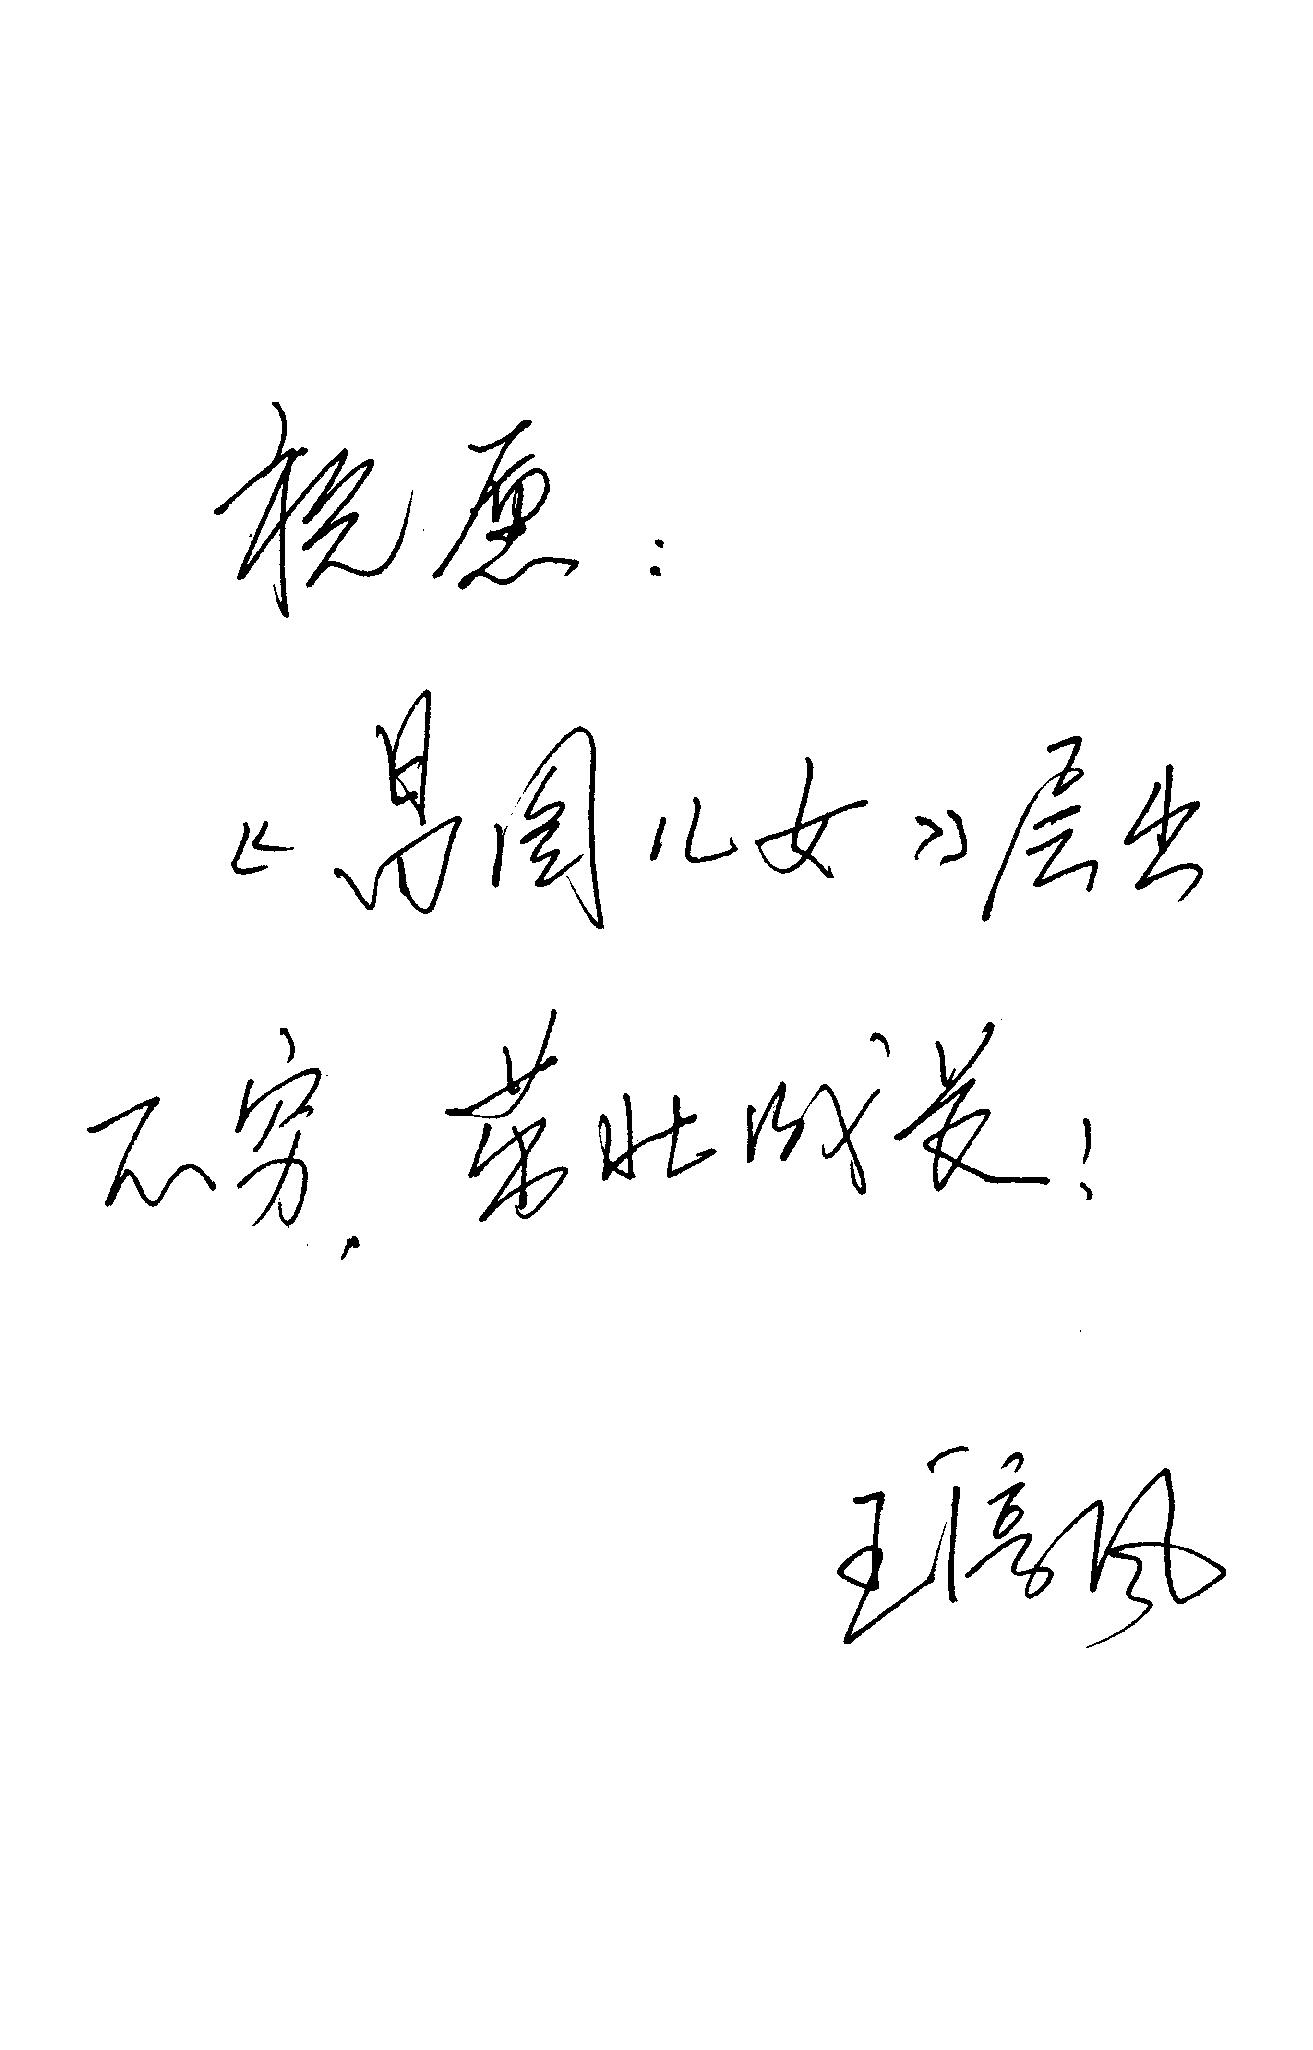 祝愿：
《昌图儿女》层出
不穷，茁壮成长！
王